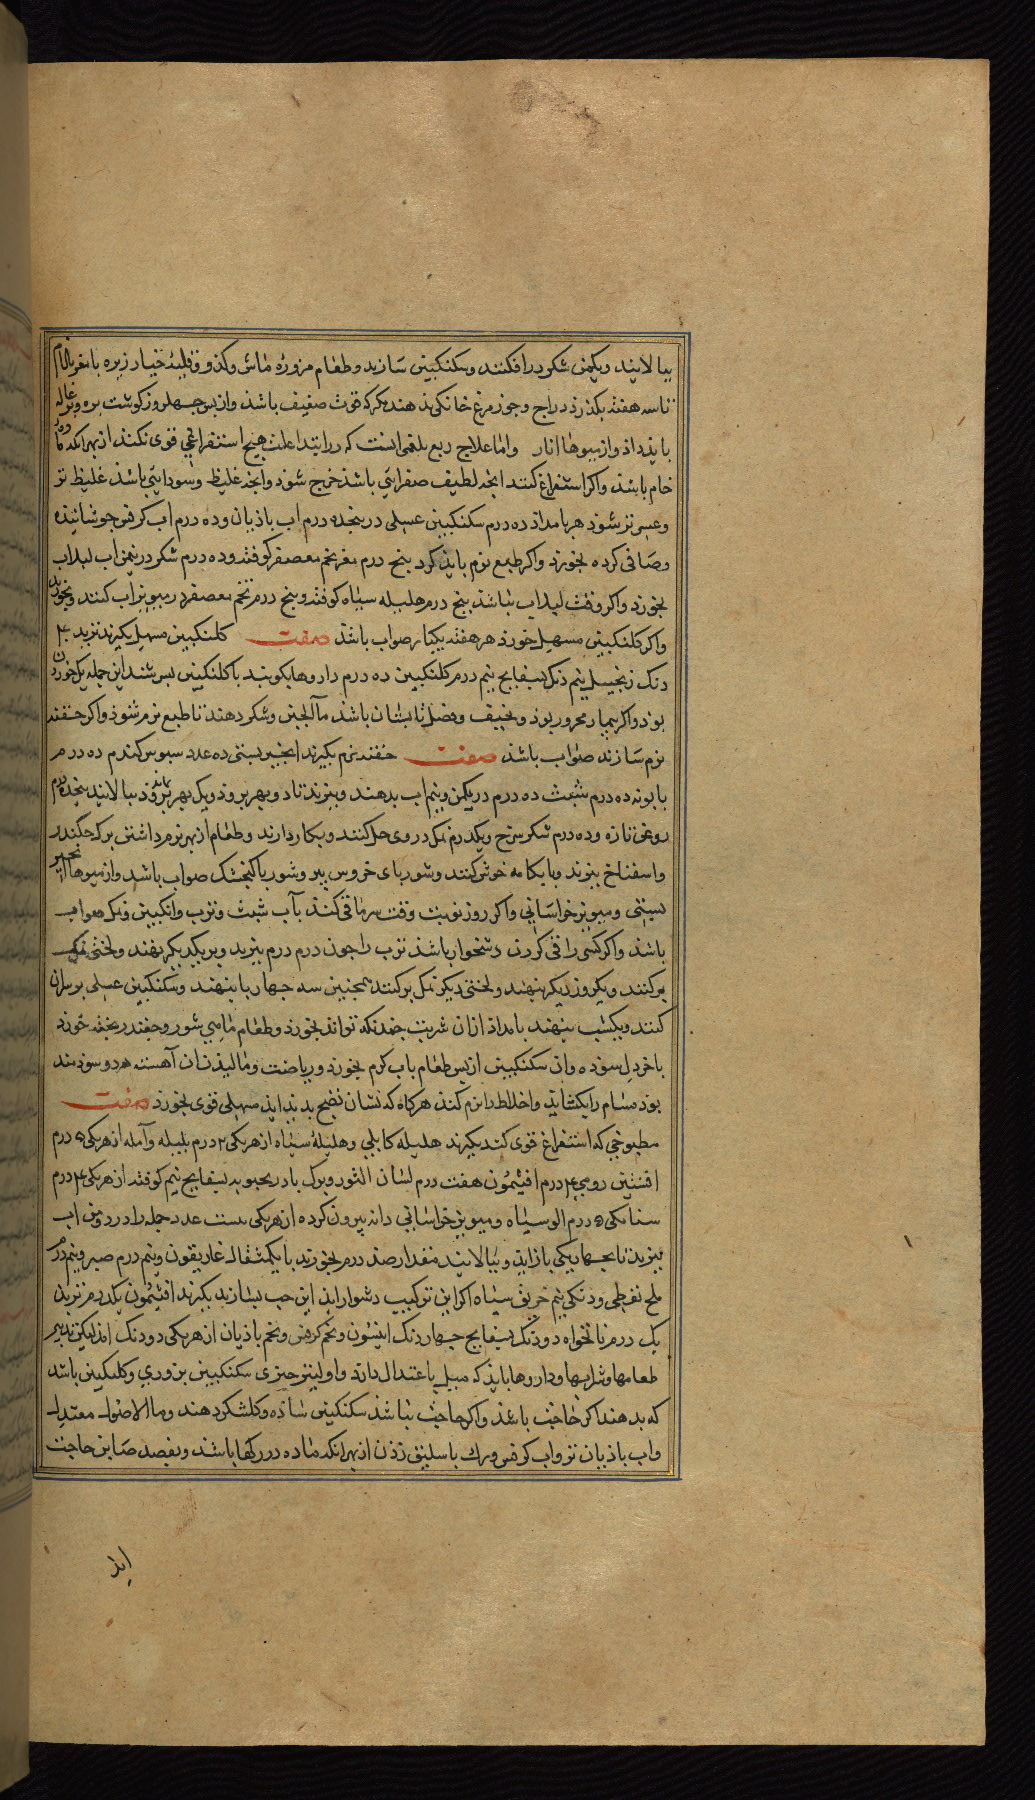 بپالایند ویکمن شکر درافکنند وسکنکبین سازند وطعام مزوره ماش وکدو وقلیۀ خیار زیره با مغز بادام
تا سه هفته بکذرذ دراج وجوزه مرغ خانکی دهند بکر که قوت ضعیف باشد وازبس جهل روز کوشت بره وبزغاله
بایذ داذ واز میوها انار واما علاج ربع بلغمی انست که درابتداء علت هیج استفراغی قوی نکنند ازبهر انکه ماده
خام باشذ واکر استفراغ کنند انجه لطیف صفرایی باشذ خرج شوذ وانجه غلیظ وسودایی باشذ غلیظ تر
وعسرتر شوذ هر بامداذ ده درم سکنکبین عسلی در بنجاه درم اب باذیان وده درم اب کرفس جوشانیذه
وصافی کرده بخورذ واکر طبع نرم بایذ کرد بنج درم مغز تخم معصفر کوفته وده درم شکر در نیمن اب لبلاب
بخورذ واکر وقت لبلاب نباشذ بنج درم هلیله سیاه کوفته وبنج درم تخم معصفر در میویزاب کنند وبخورند
واکر کلنکبین مسهل خورذ هر هفته یکبار صواب باشذ صفت کلنکبین مسهل بکیرند تربد ۴
دنک زنجبیل نیم دنک بسفایج نیم درم کلنکبین ده درم داروها بکوبند با کلنکبین بسرشند این جمله یک خوردن
بوذ واکر بیمار محرور بوذ ونحیف وفصل تابستان باشذ ماالجبن وشکر دهند تا طبع نرم شوذ واکر حقنه
نرم سازند صواب باشذ صفت حقنه نرم بکیرند انجیر بستی ده عدد سبوس کندم ده درم
بابونه ده درم شبث ده درم در یکمن ونیم اب بدهند وببزند تا دو بهر بروذ ویک بهر بماند وبپالایند بنجاه درم
روغن تازه وده درم شکر سرخ ویکدرم نمک دروی حل کنند وبکار دارند وطعام ازبهر نرم داشتن برک جکندر
واسفناخ ببزند وبابکامه خوش کنند وشوربای خروس پیر وشوربا کنجشک صواب باشد واز میوها انجیر
بستی ومیویز خراسانی واکر روز نوبت وقت سرما قی کنذ بآب شبث وترب وانکبین ونمک صواب
باشذ واکر کسی را قی کردن دشخوار باشذ ترب را جون درم درم ببرند وبر یکدیکر نهند ولختی نمک
برکنند ویکروز دیکر بنهند ولختی دیکر نمک برکنند همجنین سه جهار بار بنهند وسکنکبین عسلی برسران
کنند ویکشب بنهند بامداذ ازان شربت جندانکه تواند بخورذ وطعام ماهی شور وجغندر بخته خورذ
باخردل سوذه وان سکنکبین ازبس طعام باب کرم بخورذ وریاضت ومالیذن ان آهسته هر دو سوذمند
بوذ مسام را بکشایذ واخلاط را نرم کنذ هرکاه که نشان نضج بدیذ ایذ مسهلی قوی بخورذ صفت
مطبوخی که استفراغ قوی کند بکیرند هلیله کابلی وهلیلۀ سیاه از هریکی ۲ درم بلیله وآمله از هریکی ۵ درم
افسنتین رومی ۴ درم افیثمون هفت درم لسان الثور وبرک بادرنجبویه بسفایج نیم کوفته از هریکی ۴ درم
سنامکی ۵ درم الو سیاه ومیویز خراسانی دانه بیرون کرده از هریکی بیست عدد جمله را در دو من اب
ببزند تا بجهاریکی بازاید وبپالایند مقدار صد درم بخورند با یکمثقال غاریقون ونیم درم صبر ونیم درم
ملح نفطی ودنکی نیم خربق سیاه اکر این ترکیب دشوار ایذ این حب بسازند بکیرند افیثمون یکدرم تربد
یک درم نانخواه دو دنک بسفایج جهار دنک انیسون وتخم کرفس وتخم باذیان از هریکی دو دنک اما لیکن تدبیر
طعامها وشرابها وداروها بایذ که میل باعتدال دارذ واولیتر جیزی سکنکبین بزوری وکلنکبین باشد
که بدهند اکر حاجت باشذ واکر حاجت نباشذ سکنکبین ساده وکلشکر دهند وما الاصول معتدل
واب باذیان تر واب کرفس ورک باسلیق زذن ازبهر انکه ماده در رکها باشذ وبقصد صابن حاجت
ایذ